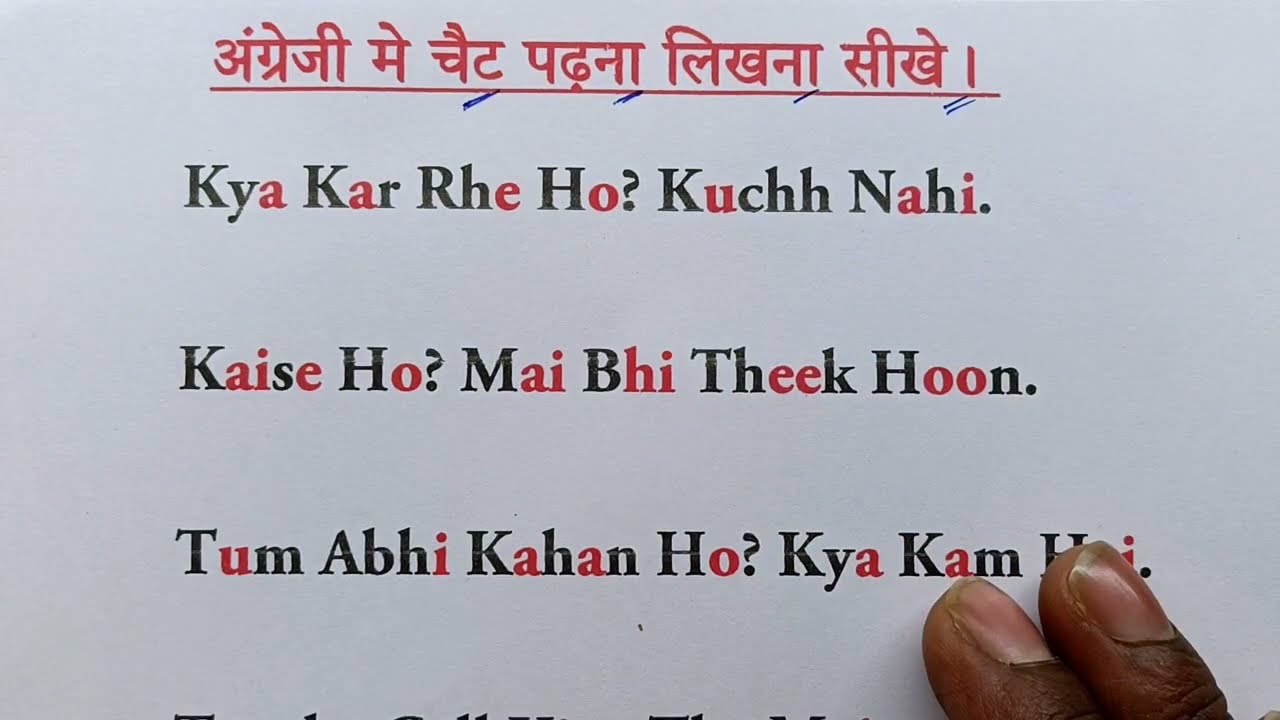 अंग्रेजी मे चैट पढ़ना लिखना सीखे।
Kya Kar Rhe Ho? Kuchh Nahi.
Kaise Ho? Mai Bhi Theek Hoon.
Tum Abhi Kahan Ho? Kya Kam Hai.